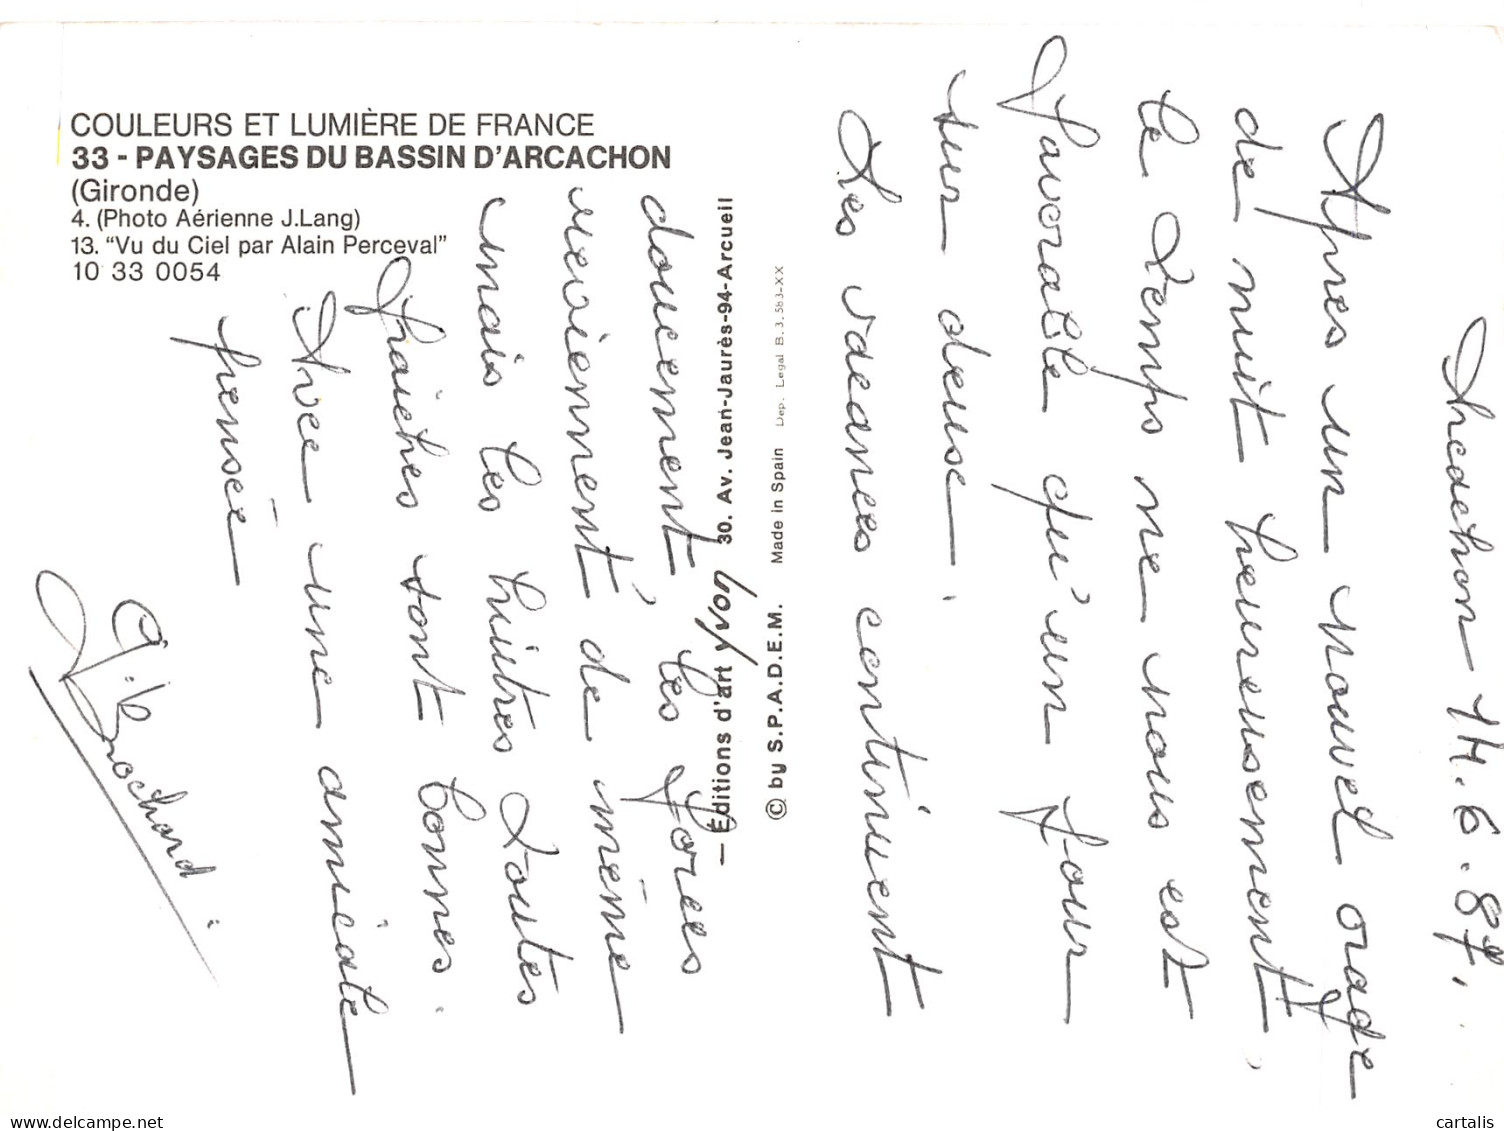 COULEURS ET LUMIÈRE DE FRANCE
33 - PAYSAGES DU BASSIN D'ARCACHON
(Gironde)
4. (Photo Aérienne J.Lang)
13. “Vu du Ciel par Alain Perceval”
10 33 0054
— Éditions d'art yvon 30. Av. Jean-Jaurès-94-Arcueil
© by S.P.A.D.E.M. Made in Spain Dep. Legal B.3.583-XX
Arcachon 14.6.87.
Après un nouvel orage
de nuit heureusement,
le temps ne nous est
favorable qu'un jour
sur deux.
Les vacances continuent
doucement, les forces
reviennent de même
mais les huitres toutes
fraiches sont bonnes.
Avec une amicale
pensée
G. Brochard
cartalis
delcampe.net